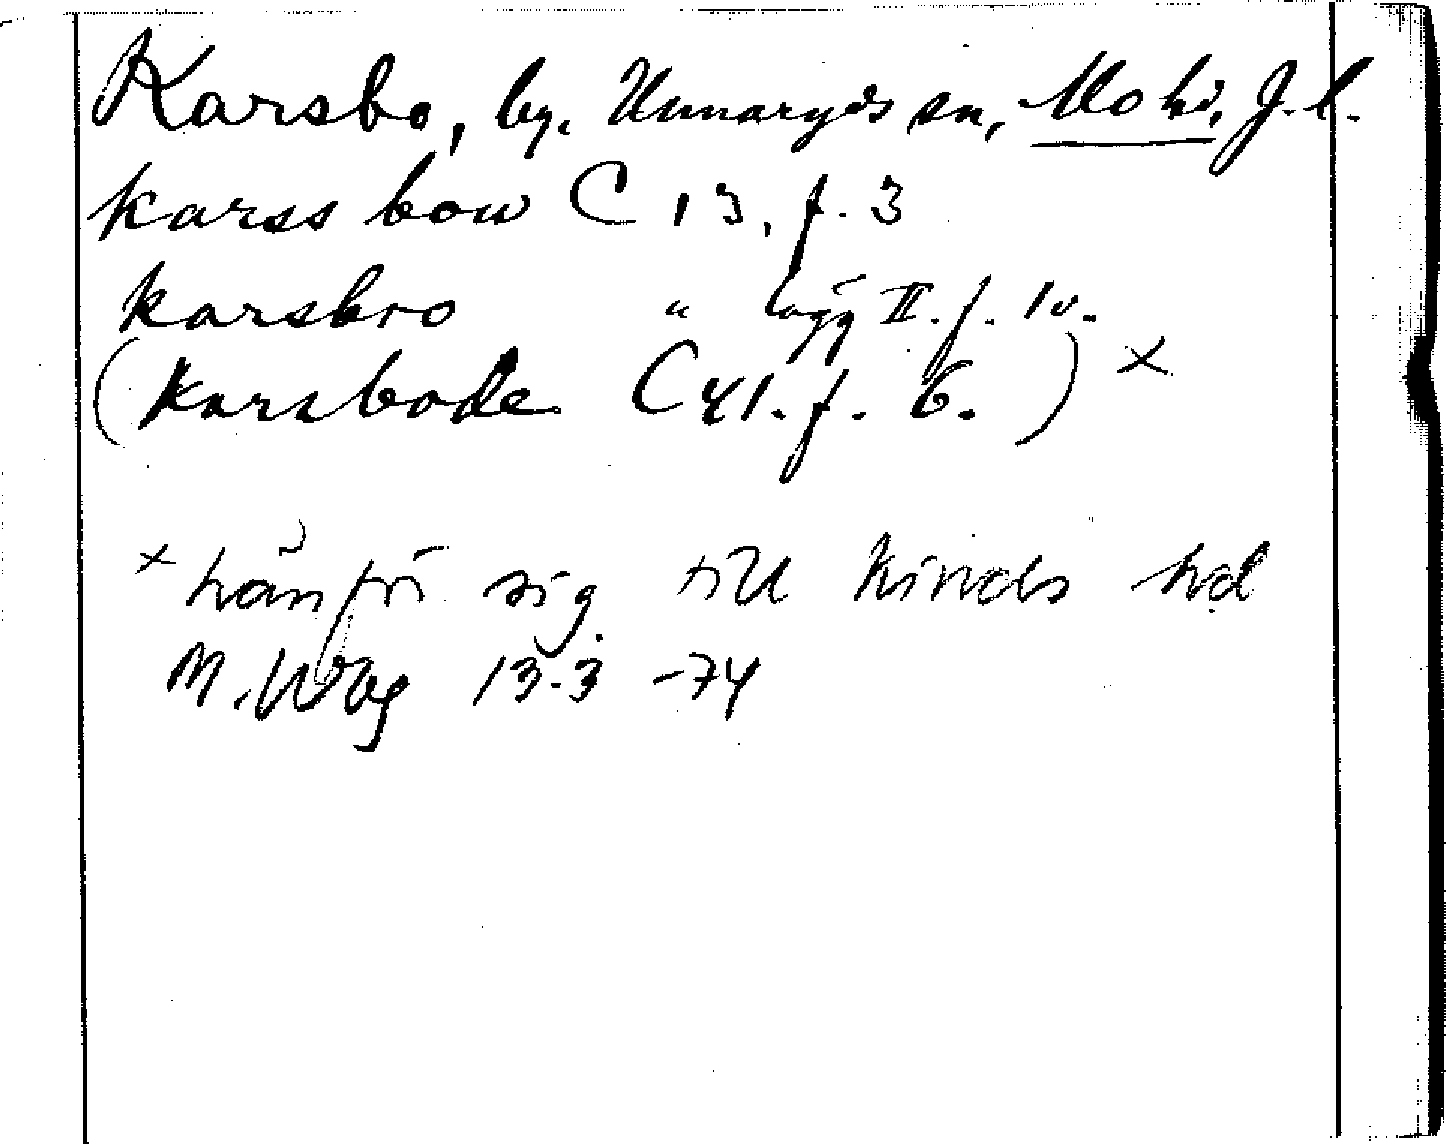 Karsbo, by. Unnaryds sn, Mo hd, J. l.
karss bow C 13, f. 3
karsbro " lägg II. f. 1v.
(karsbode C 41. f. 6.) x
x hänför sig till Kinds hd
M. 13.3 -74